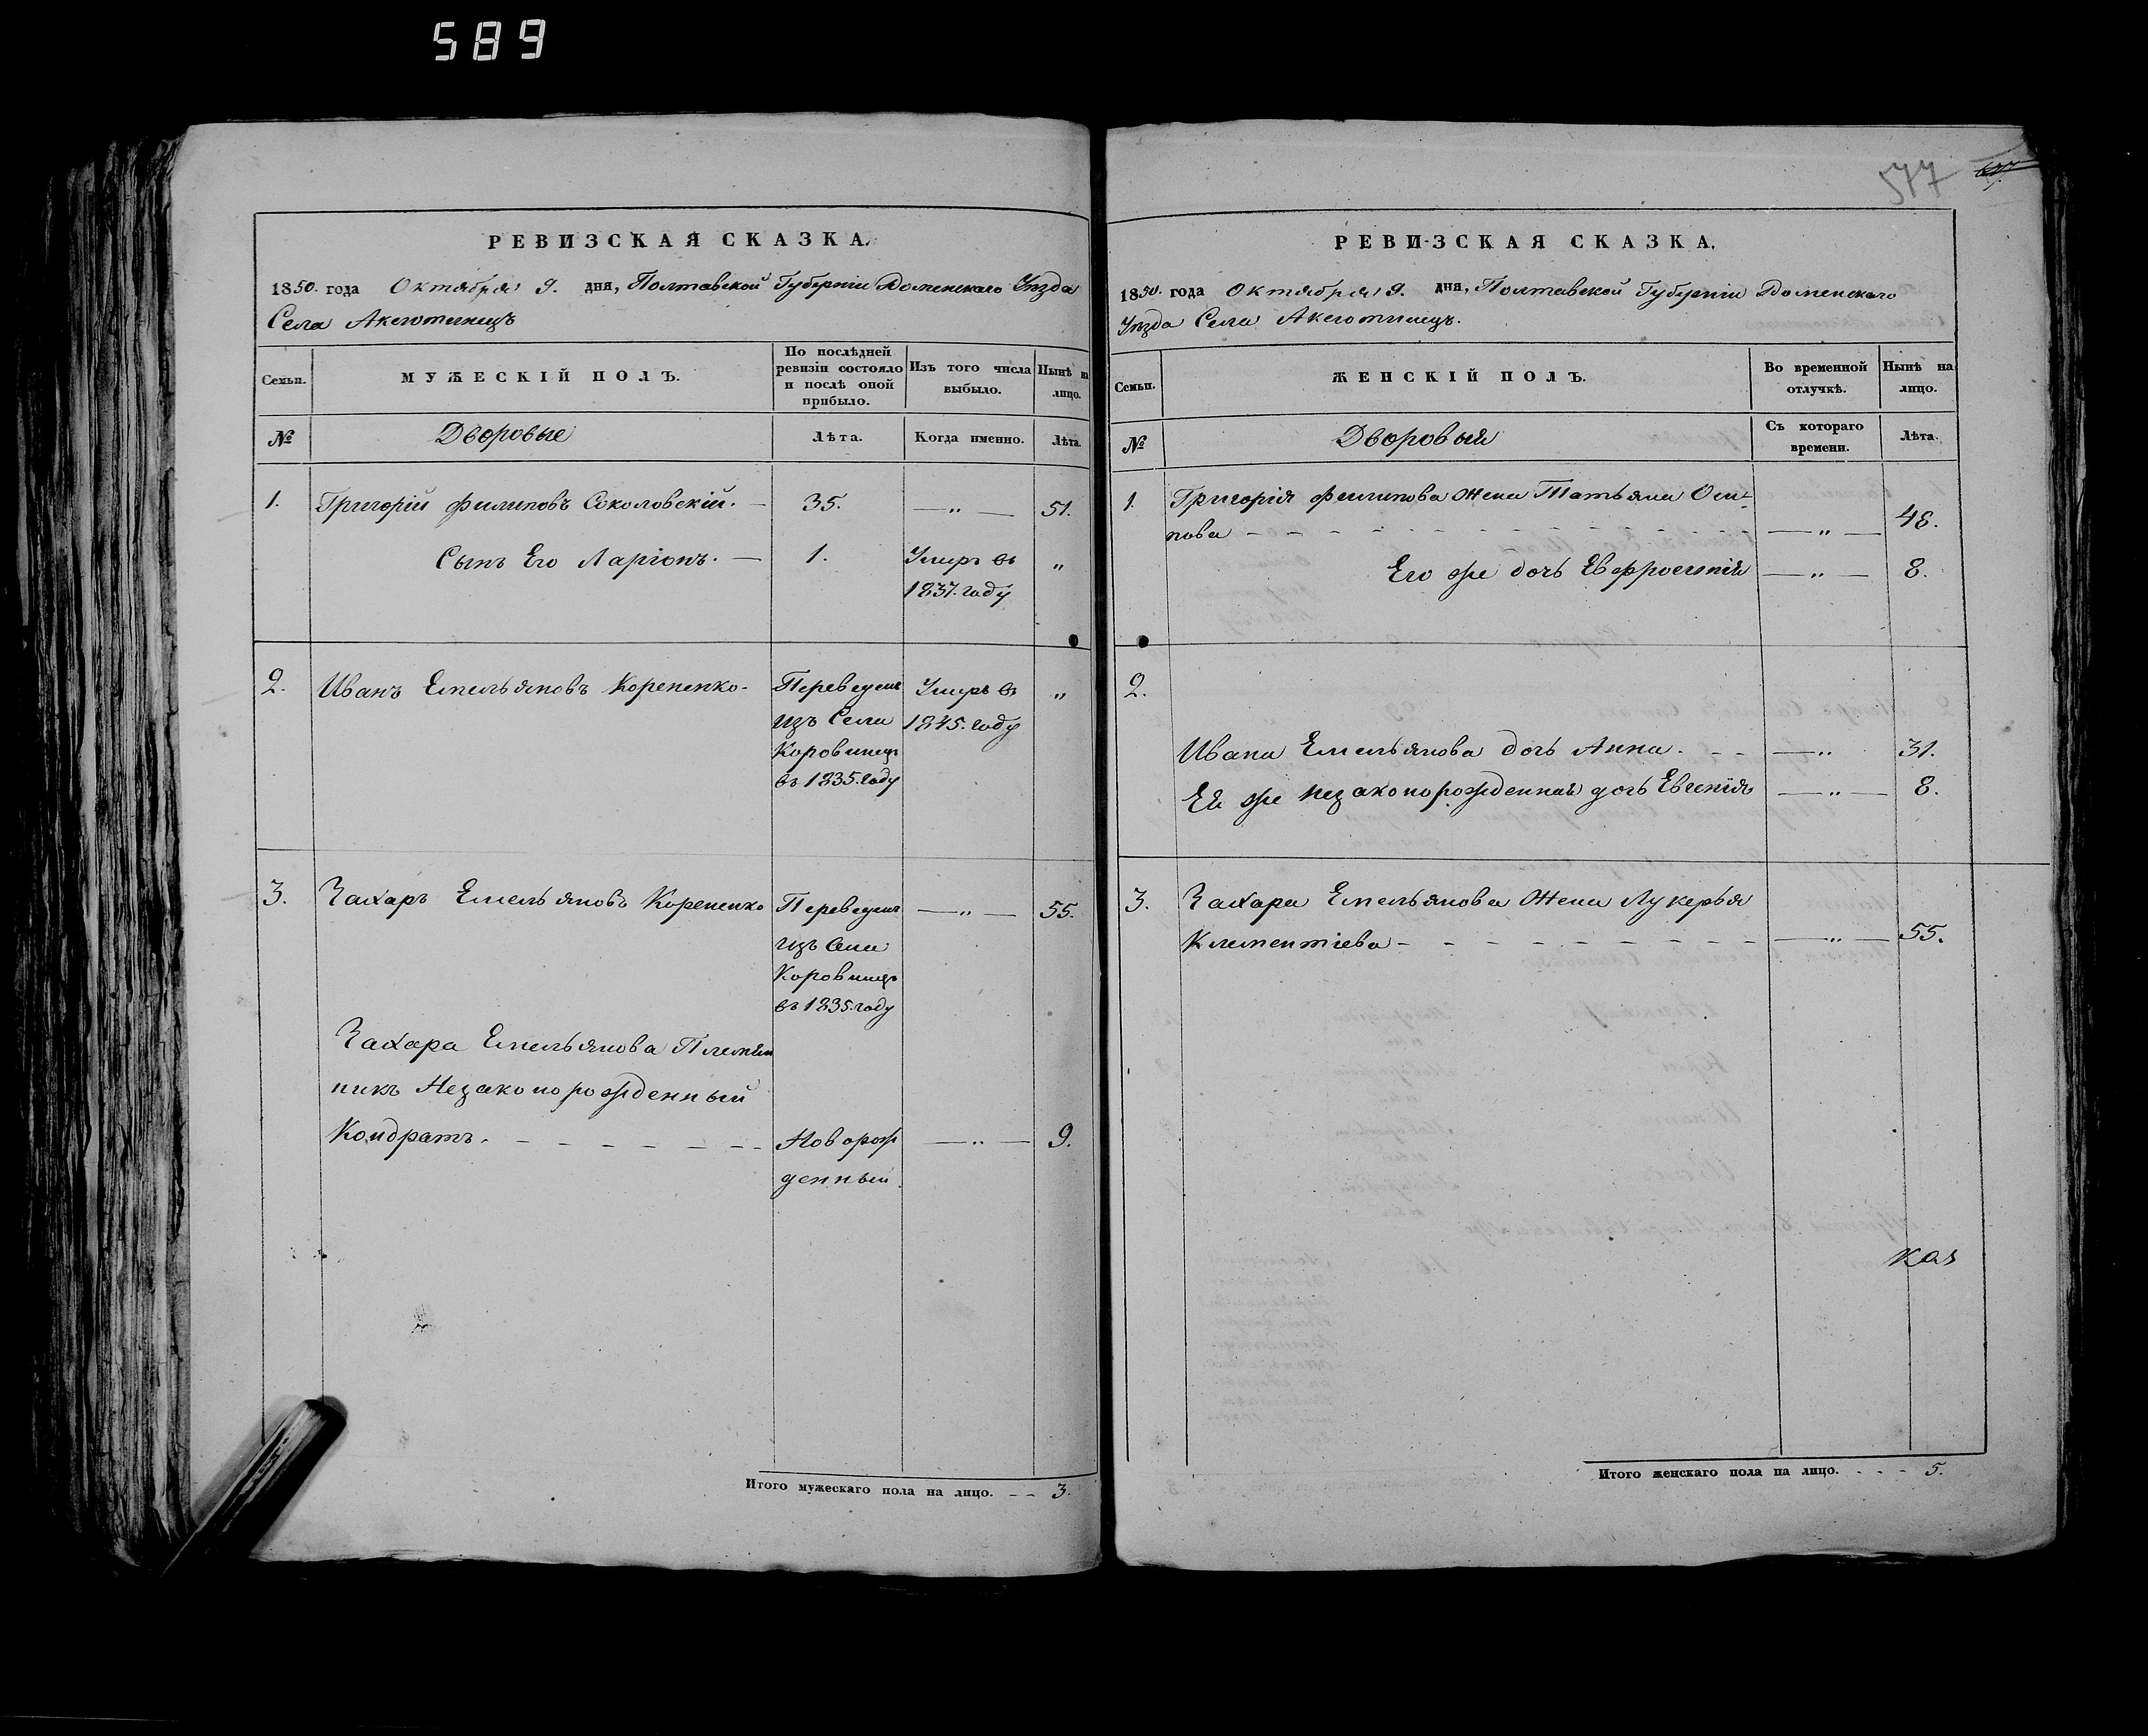 589
РЕВИЗСКАЯ СКАЗКА.
1850. года Октября 9. дня, Полтавской Губерніи Роменскаго Уѣзда
Села Аксютинецъ
Семьи.
МУЖЕСКІЙ ПОЛЪ.
По послѣдней
ревизіи состояло
и послѣ оной
прибыло.
Изъ того числа
выбыло.
Нынѣ на
лицо.
№
Дворовые
Лѣта.
Когда именно.
Лѣта.
1. Григорій Филиповъ Соколовскій. — 35. — „ — 51.
Сынъ Его Ларіонъ. — 1. Умеръ въ „
1837. году
2. Иванъ Емельяновъ Корененко. Переведенъ Умеръ въ „
изъ Села 1845. году
Коровинецъ
въ 1835. году
3. Захаръ Емельяновъ Корененко Переведенъ — „ — 55.
изъ Села
Коровинецъ
въ 1835. году
Захара Емельянова Племян
никъ Незаконорожденный
Кондратъ. - - - - - - -Новорож — „ — 9.
денный.
Итого мужескаго пола на лицо. - - 3.
577
РЕВИЗСКАЯ СКАЗКА.
1850. года Октября 9. дня, Полтавской Губерніи Роменскаго
Уѣзда Села Аксютинецъ.
Семьи.
ЖЕНСКІЙ ПОЛЪ.
Во временной
отлучкѣ.
Нынѣ на
лицо.
№
Дворовыя
Съ котораго
времени.
Лѣта.
1. Григорія Филипова Жена Татьяна Оси-
пова - - - - - - - - - — „ — 48.
Его же дочь Евфросинія — „ — 8.
2.
Ивана Емельянова дочь Анна. - - — „ 31.
Ея же незаконорожденная дочь Евгенія — „ — 8.
3. Захара Емельянова Жена Лукерья
Клементіева - - - - - - - - - — „ — 55.
каз
Итого женскаго пола на лицо. - - - 5.